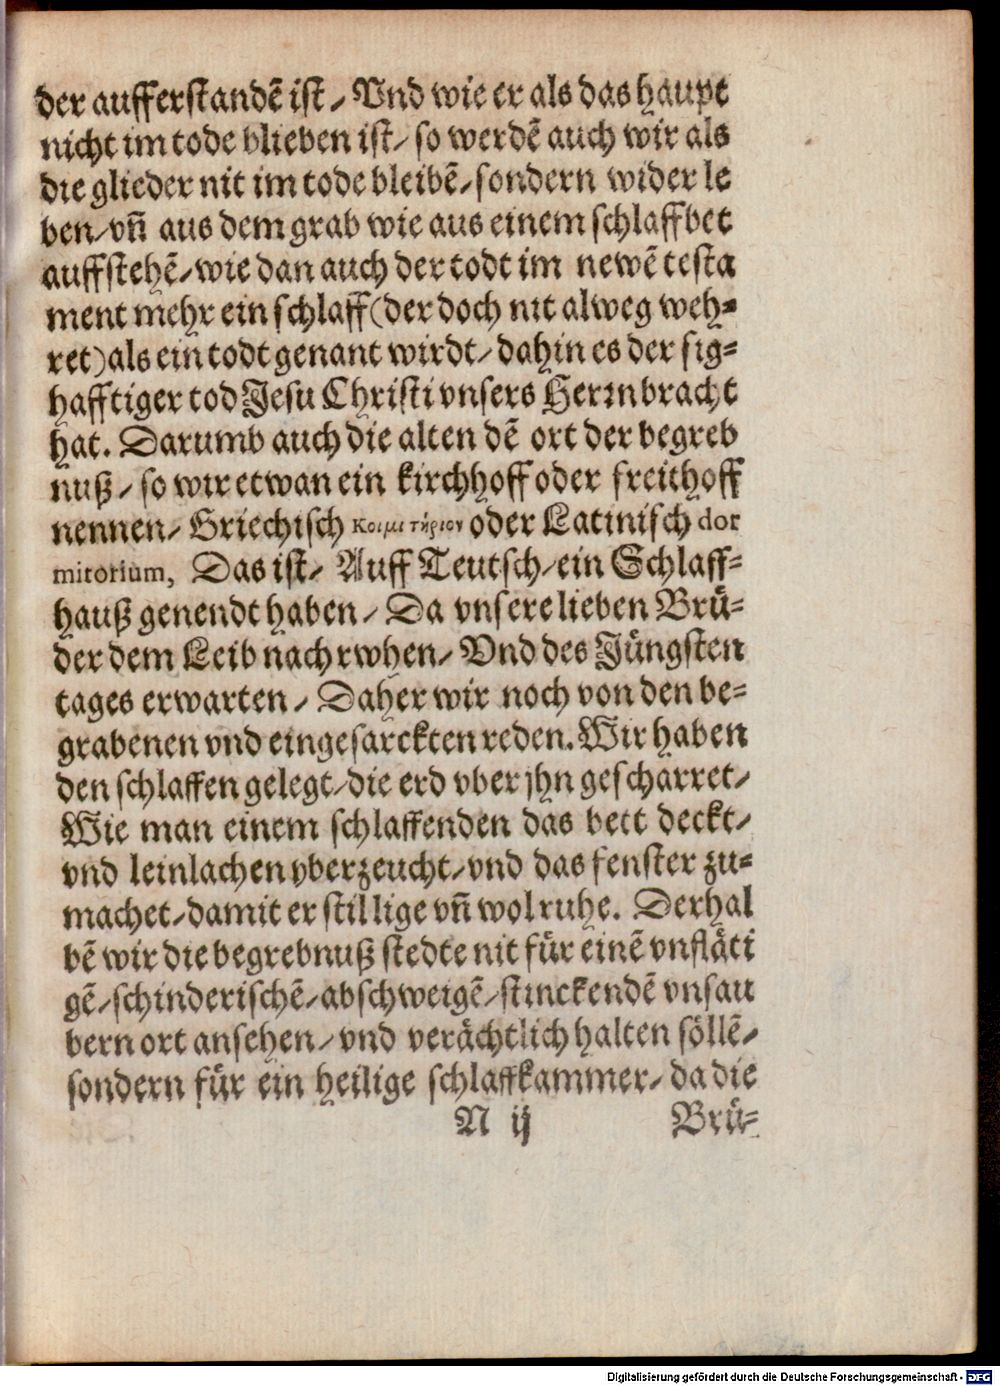 der aufferstandē ist / Vnd wie er als das haupt
nicht im tode blieben ist / so werdē auch wir als
die glieder nit im tode bleibē / sondern wider le
ben / vn̄ aus dem grab wie aus einem schlaffbet
auffstehē / wie dan auch der todt im newē testa
ment mehr ein schlaff (der doch nit alweg weh⸗
ret) als ein todt genant wirdt / dahin es der sig⸗
hafftiger tod Jesu Christi vnsers Herrn bracht
hat. Darumb auch die alten dē ort der begreb
nuß / so wir etwan ein kirchhoff oder freithoff
nennen / Griechisch Κοιμιτήριον oder Latinisch dor
mitorium, Das ist / Auff Teutsch / ein Schlaff⸗
hauß genendt haben / Da vnsere lieben Brü⸗
der dem Leib nach rwhen / Vnd des Jüngsten
tages erwarten / Daher wir noch von den be⸗
grabenen vnd eingesarckten reden. Wir haben
den schlaffen gelegt / die erd vber jhn gescharret /
Wie man einem schlaffenden das bett deckt /
vnd leinlachen vberzeucht / vnd das fenster zu⸗
machet / damit er stil lige vn̄ wol ruhe. Derhal
bē wir die begrebnuß stedte nit für einē vnfläti
gē / schinderischē / abschweigē / stinckendē vnsau
bern ort ansehen / vnd verächtlich halten söllē /
sondern für ein heilige schlaffkammer / da die
N ij Brü⸗
Digitalisierung gefördert durch die Deutsche Forschungsgemeinschaft - DFG